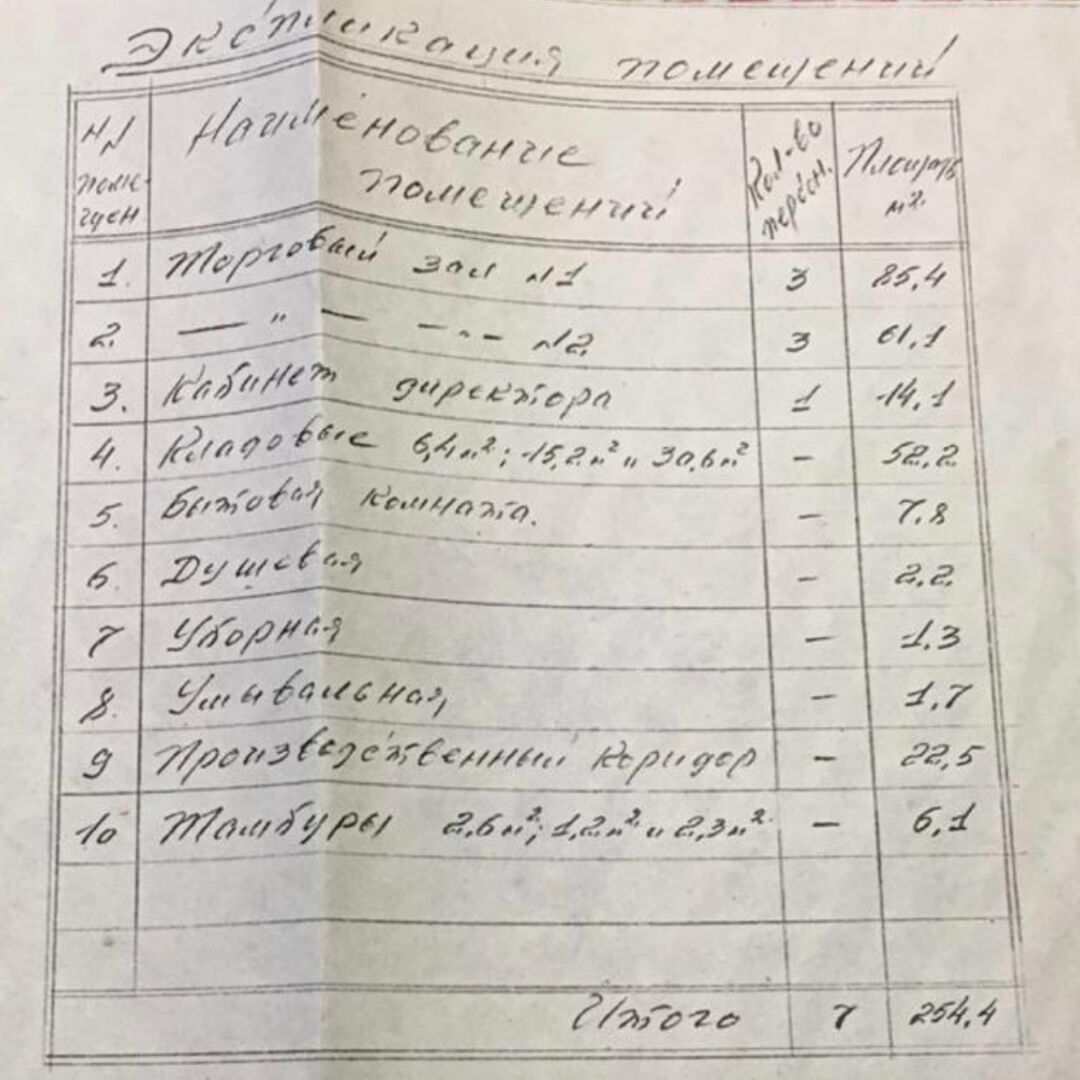 Экспликация помещений
NN помещен
Наименование помещений
Кол-во персон.
Площадь м²
1. Торговый зал N1 3 85,4
2. — " — — " — N2. 3 61,1
3. Кабинет директора 1 14,1
4. Кладовые 6,4 м²; 15,2 м² и 30,6 м² — 52,2
5. Бытовая комната. — 7,8
6. Душевая — 2,2
7 Уборная — 1,3
8. Умывальная — 1,7
9 Производственный коридор — 22,5
10 Тамбуры 2,6 м²; 1,2 м² и 2,3 м² — 6,1
Итого 7 254,4